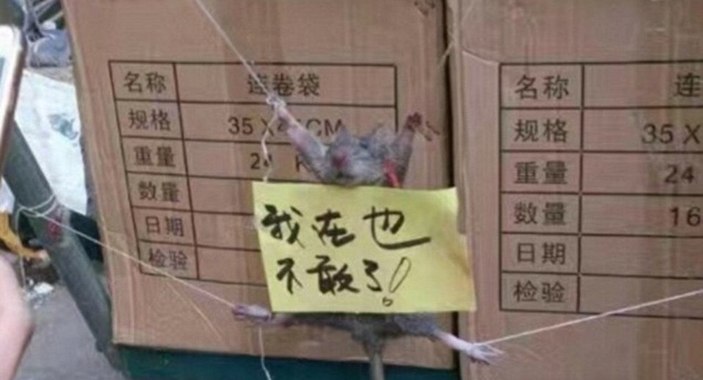 名称 连卷袋
规格 35X CM
重量 24
数量
日期
检验
我在也
不敢了!
名称 连
规格 35X
重量 24
数量 16
日期
检验